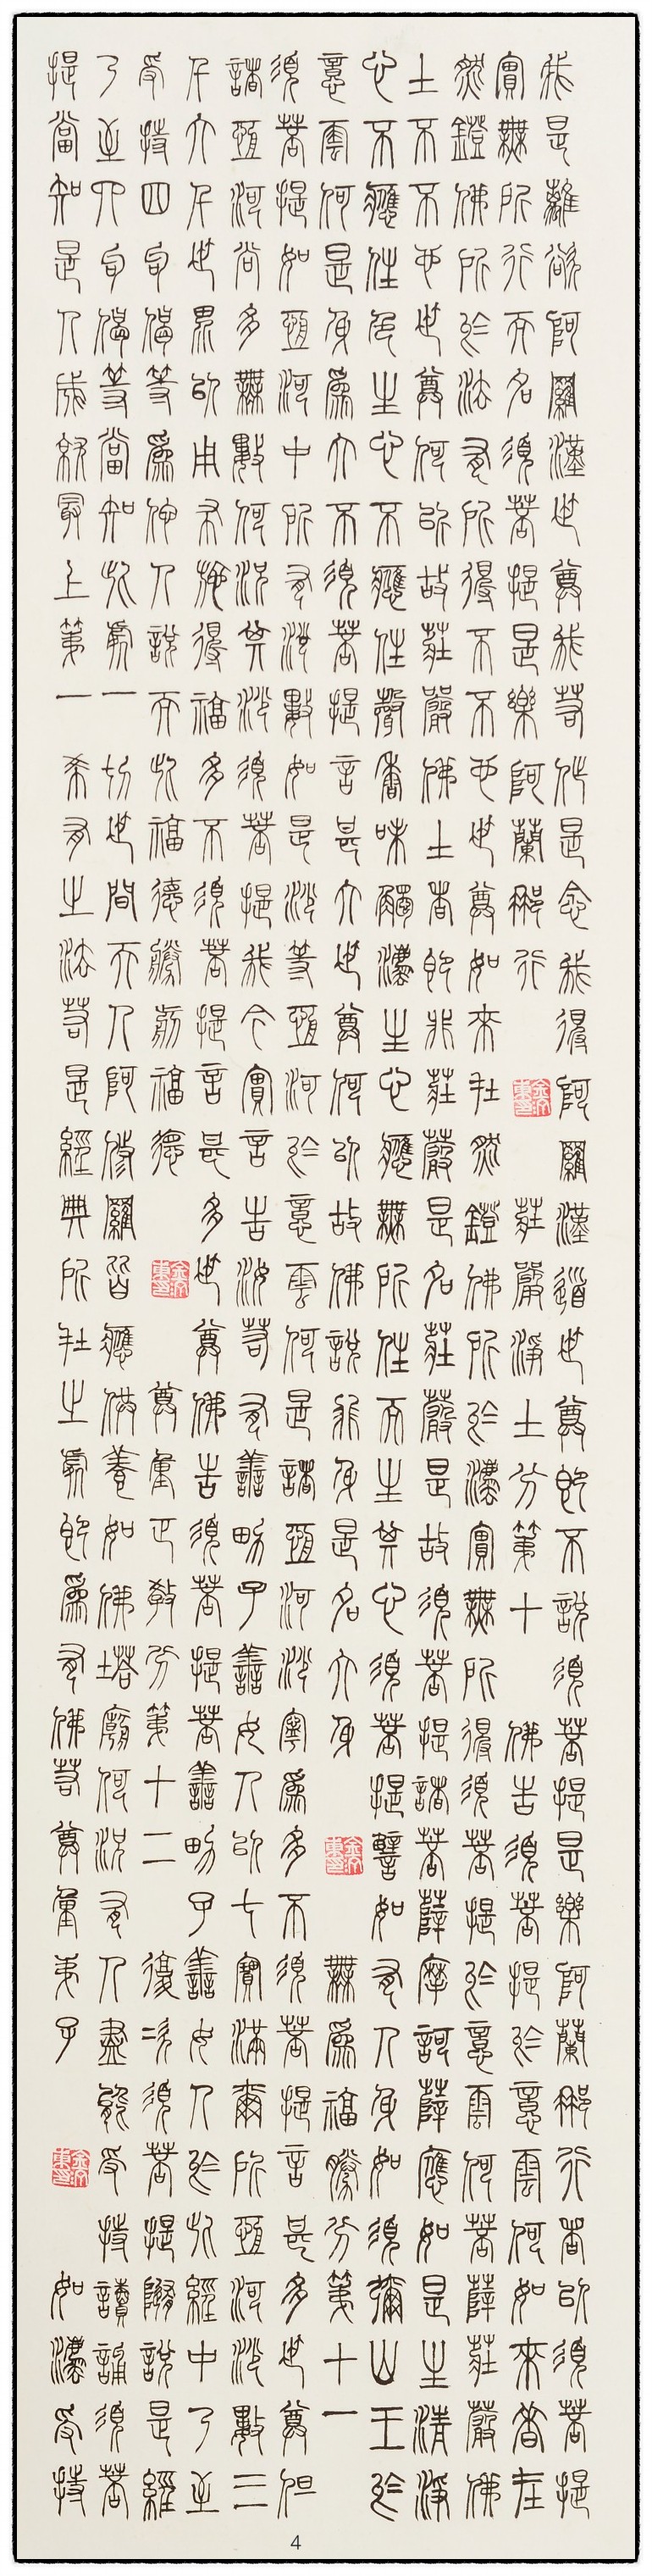 我是離欲阿羅漢世尊我若作是念我得阿羅漢道世尊即不說須菩提是樂阿蘭那行者以須菩提
實無所行而名須菩提是樂阿蘭那行 莊嚴淨土分第十 佛告須菩提於意雲何如來昔在
然鐙佛所於法有所得不不也世尊如來在然鐙佛所於灋實無所得須菩提於意雲何菩薩莊嚴佛
土不不也世尊何以故莊嚴佛土者即非莊嚴是名莊嚴是故須菩提諸菩薩摩訶薩應如是生清淨
心不應住色生心不應住聲香味觸灋生心應無所住而生其心須菩提譬如有人身如須彌山王於
意雲何是身為大不須菩提言甚大世尊何以故佛說非身是名大身 無為福勝分第十一
須菩提如恆河中所有沙數如是沙等恆河於意雲何是諸恆河沙寧為多不須菩提言甚多世尊但
諸恆河尚多無數何況其沙須菩提我今實言告汝若有善男子善女人以七寶滿爾所恆河沙數三
千大千世界以用布施得福多不須菩提言甚多世尊佛告須菩提若善男子善女人於此經中乃至
受持四句偈等為他人說而此福德勝前福德 尊重正教分第十二 復次須菩提隨說是經
乃至四句偈等當知此處一切世間天人阿修羅皆應供養如佛塔廟何況有人盡能受持讀誦須菩
提當知是人成就最上第一希有之法若是經典所在之處即為有佛若尊重弟子 如灋受持
4